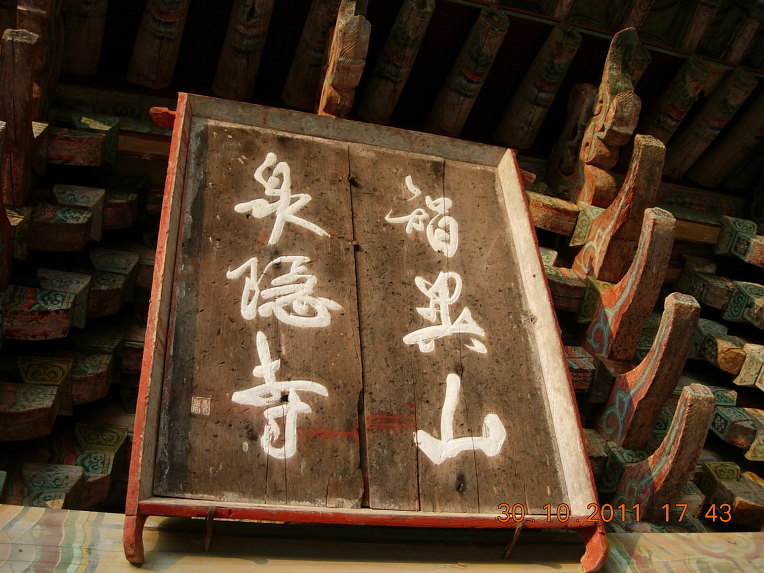 智異山
泉隱寺
30.10.2011 17:43